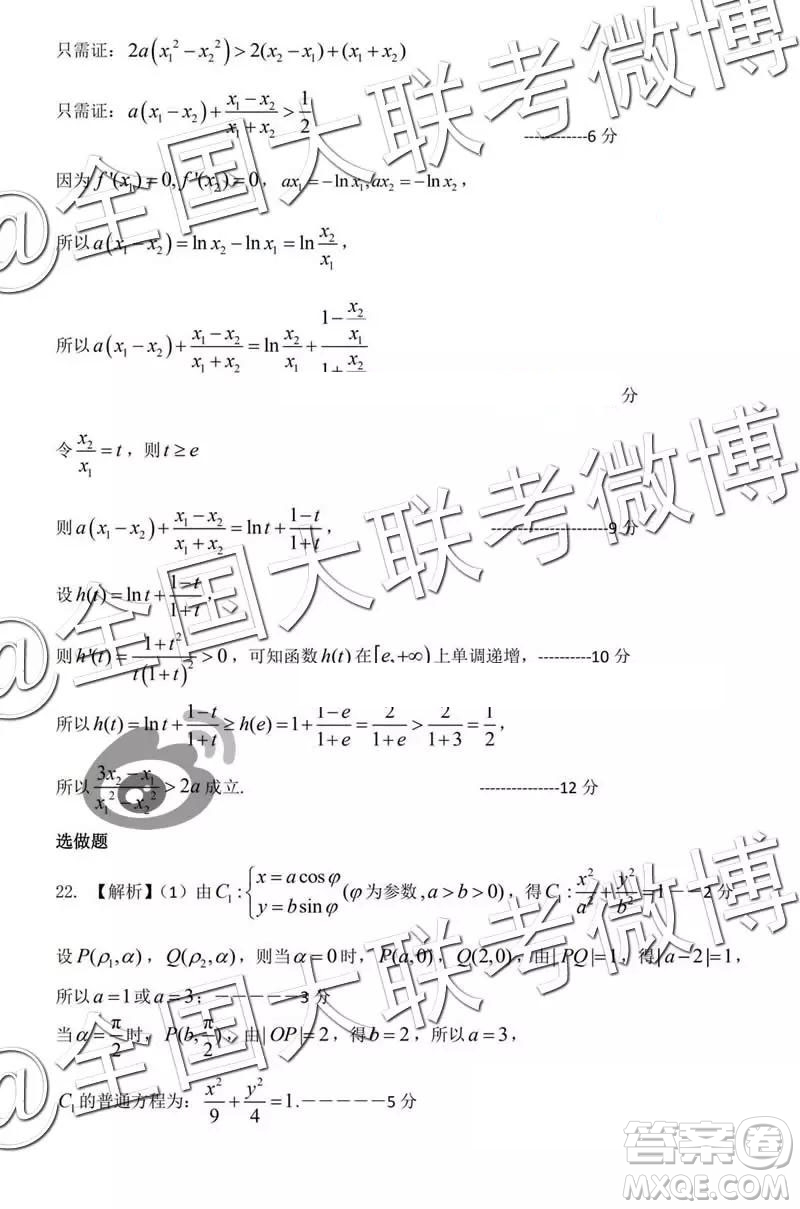 只需证：2a(x₁²－x₂²)＞2(x₂－x₁)＋(x₁＋x₂)
只需证：a(x₁－x₂)＋(x₁－x₂)/(x₁＋x₂)＞1/2 ------------6 分
因为 f '(x₁)＝0, f '(x₂)＝0，ax₁＝－ln x₁, ax₂＝－ln x₂，
所以 a(x₁－x₂)＝ln x₂－ln x₁＝ln x₂/x₁，
所以 a(x₁－x₂)＋(x₁－x₂)/(x₁＋x₂)＝ln x₂/x₁＋(1－x₂/x₁)/(1＋x₂
分
令 x₂/x₁＝t，则 t≥e
则 a(x₁－x₂)＋(x₁－x₂)/(x₁＋x₂)＝ln t＋(1－t)/(1＋t)， ----------------------9 分
设 h(t)＝ln t＋(1－t)/(1＋t)，
则 h'(t)＝(1＋t²)/(t(1＋t)²)＞0，可知函数 h(t) 在 [e,+∞) 上单调递增，----------10 分
所以 h(t)＝ln t＋(1－t)/(1＋t)≥h(e)＝1＋(1－e)/(1＋e)＝2/(1＋e)＞2/(1＋3)＝1/2，
所以 (3x₂－x₁)/(x₁²－x₂²)＞2a 成立. ---------------12 分
选做题
22. 【解析】（1）由 C₁:{x＝a cosφ y＝b sinφ (φ 为参数, a＞b＞0)，得 C₁: x²/a²＋y²/b²＝1－－－2 分
设 P(ρ₁,α)，Q(ρ₂,α)，则当 α＝0 时，P(a,0)，Q(2,0)，由|PQ|＝1，得|a－2|＝1，
所以 a＝1 或 a＝3；－－－－－3 分
当 α＝π/2 时，P(b,π/2)，由|OP|＝2，得 b＝2，所以 a＝3，
C₁ 的普通方程为：x²/9＋y²/4＝1.－－－－－5 分
@全国大联考微博
@全国大联考微博
@全国大联考微博
答案卷
MXQE.COM